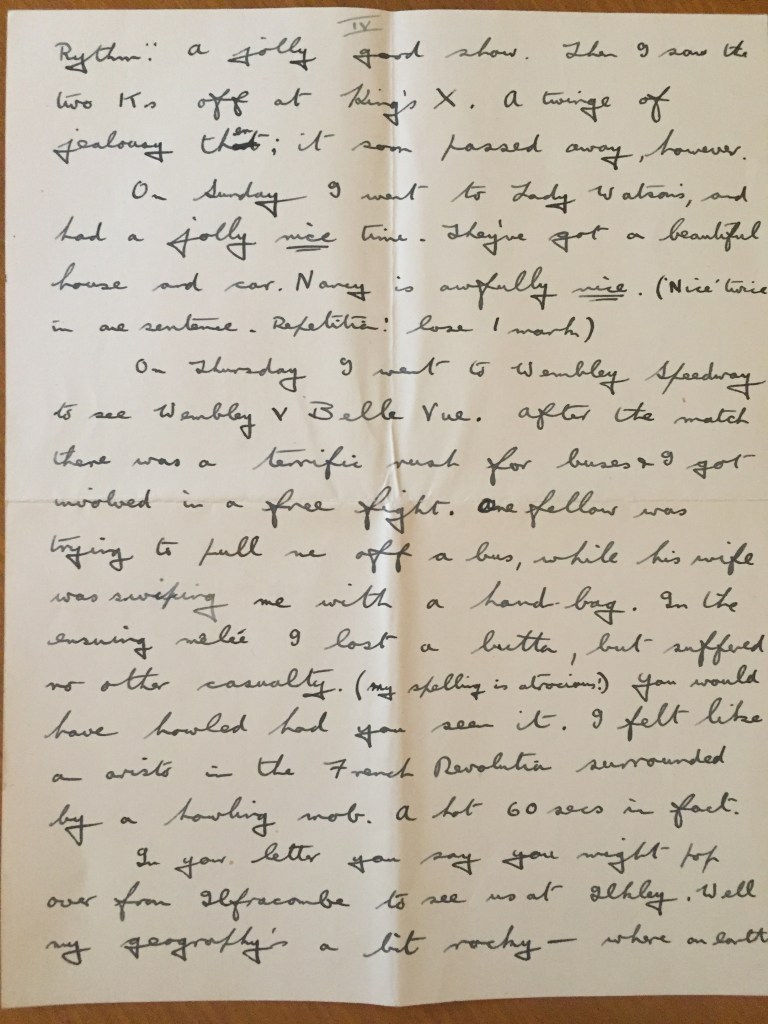 IV
Rythm": A jolly good show. Then I saw the
two Ks off at King's X. A twinge of
jealousy then; it soon passed away, however.
On Sunday I went to Lady Watsons, and
had a jolly nice time. They've got a beautiful
house and car. Nancy is awfully nice. ('Nice' twice
in one sentence. Repetition: lose 1 mark)
On Thursday I went to Wembley Speedway
to see Wembley V Belle Vue. After the match
there was a terrific rush for buses & I got
involved in a free fight. One fellow was
trying to pull me off a bus, while his wife
was swiping me with a hand-bag. In the
ensuing melée I lost a button, but suffered
no other casualty. (my spelling is atrocious!) You would
have howled had you seen it. I felt like
an aristo in the French Revolution surrounded
by a howling mob. A hot 60 secs in fact.
In your letter you say you might pop
over from Ilfracombe to see us at Ilkley. Well
my geography's a bit rocky — where on earth